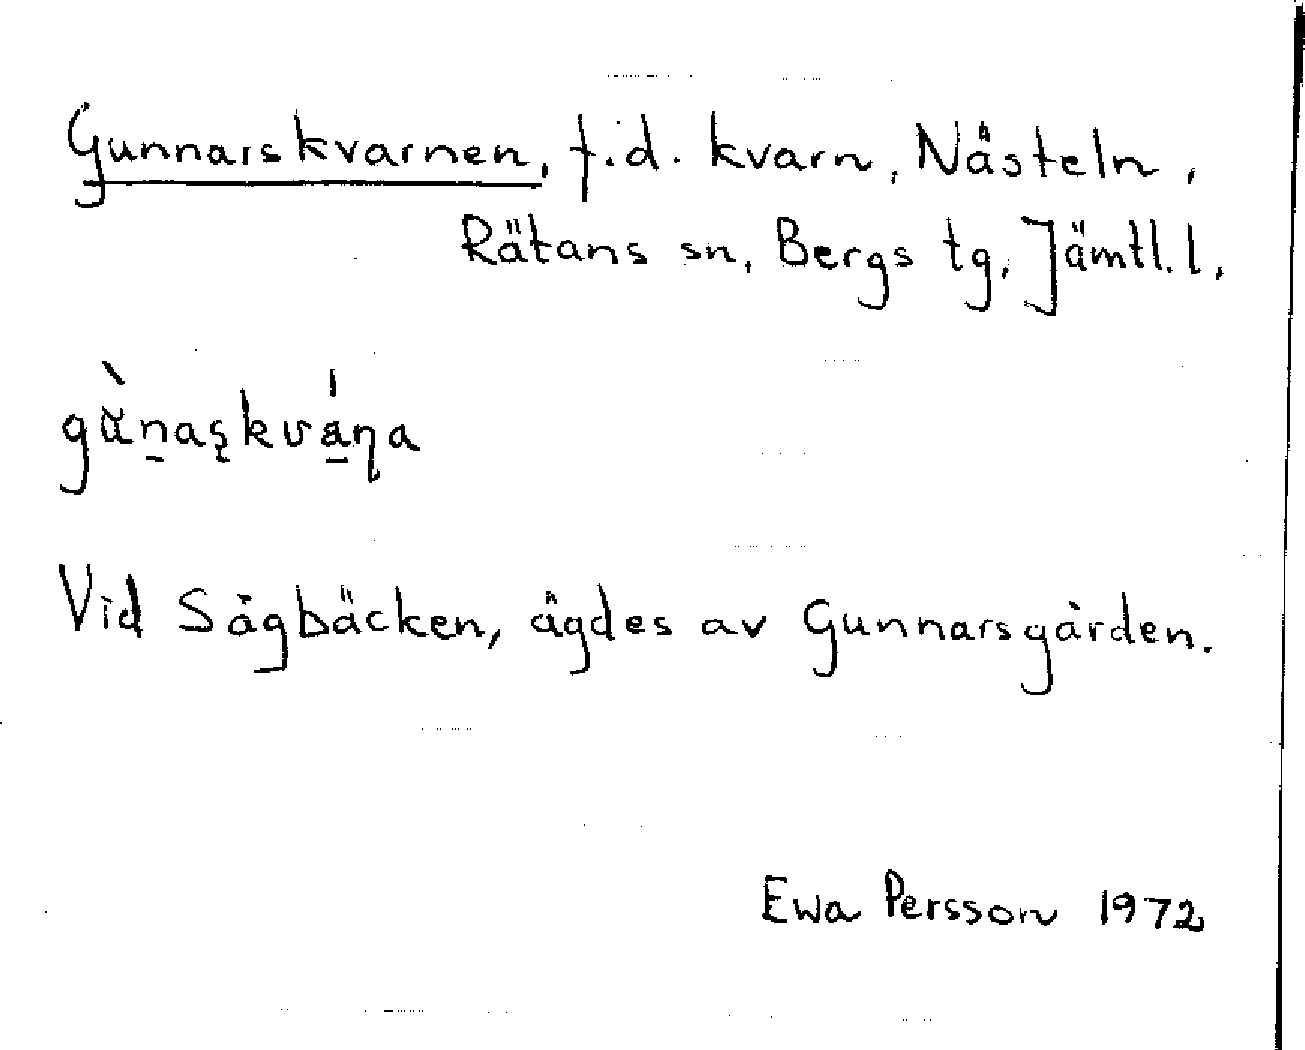 Gunnarskvarnen, f.d. kvarn, Nästeln,
Rätans sn, Bergs tg, Jämtl. l.
gànaşkvána
Vid Sågbäcken, ägdes av Gunnarsgården.
Ewa Persson 1972